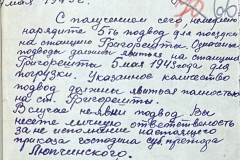 мая 1943 г.
С получением сего, немедленно
нарядите 5ть подвод для поездки
на станцию Григорешты. Означенные
подводы должны явиться на станцию
Григорешты 5 мая 1943 года для
погрузки. Указанное количество
подвод должны явиться полностью
на ст. Григорешты.
В случае неявки подвод Вы
несете личную ответственность
за не исполнение настоящего
приказа господина суб. претора